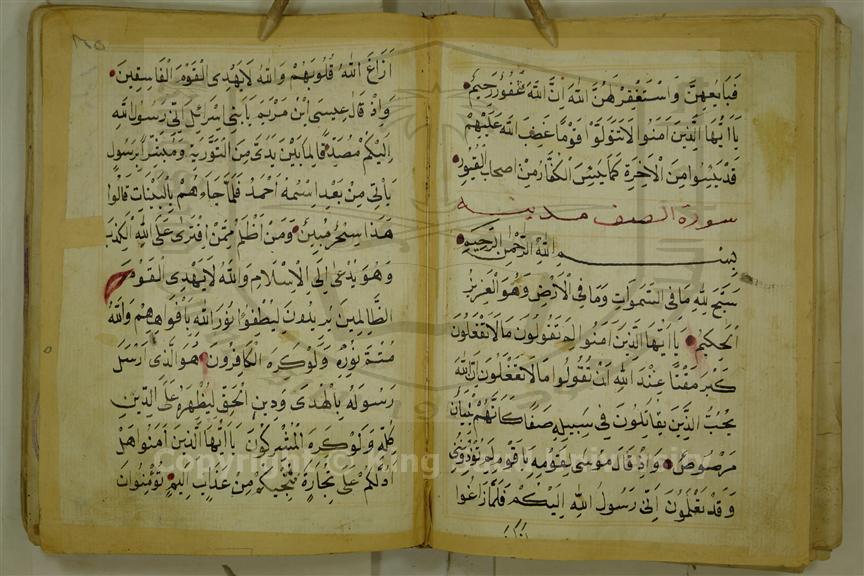 فَبَايِعْهُنَّ وَاسْتَغْفِرْ لَهُنَّ اللهَ اِنَّ اللهَ غَفُورٌ رَحِيمٌ
يَا اَيُّهَا الَّذِينَ اٰمَنُوا لَا تَتَوَلَّوْا قَوْمًا غَضِبَ اللهُ عَلَيْهِمْ
قَدْ يَئِسُوا مِنَ الْاٰخِرَةِ كَمَا يَئِسَ الْكُفَّارُ مِنْ اَصْحَابِ الْقُبُورِ
سورة الصف مدينه
بِسْمِ اللهِ الرَّحْمٰنِ الرَّحِيمِ
سَبَّحَ لِلّٰهِ مَا فِى السَّمٰوَاتِ وَمَا فِى الْاَرْضِ وَهُوَ الْعَزِيزُ
الْحَكِيمُ يَا اَيُّهَا الَّذِينَ اٰمَنُوا لِمَ تَقُولُونَ مَا لَا تَفْعَلُونَ
كَبُرَ مَقْتًا عِنْدَ اللهِ اَنْ تَقُولُوا مَا لَا تَفْعَلُونَ اِنَّ اللهَ
يُحِبُّ الَّذِينَ يُقَاتِلُونَ فِى سَبِيلِهِ صَفًّا كَاَنَّهُمْ بُنْيَانٌ
مَرْصُوصٌ وَاِذْ قَالَ مُوسَى لِقَوْمِهِ يَا قَوْمِ لِمَ تُؤْذُونَنِى
وَقَدْ تَعْلَمُونَ اَنِّى رَسُولُ اللهِ اِلَيْكُمْ فَلَمَّا زَاغُوا
اَزَاغَ اللهُ قُلُوبَهُمْ وَاللهُ لَا يَهْدِى الْقَوْمَ الْفَاسِقِينَ
وَاِذْ قَالَ عِيسَى ابْنُ مَرْيَمَ يَا بَنِى اِسْرَائِلَ اِنِّى رَسُولُ اللهِ
اِلَيْكُمْ مُصَدِّقًا لِمَا بَيْنَ يَدَىَّ مِنَ التَّوْرٰيةِ وَمُبَشِّرًا بِرَسُولٍ
يَأْتِى مِنْ بَعْدِى اسْمُهُ اَحْمَدُ فَلَمَّا جَاءَهُمْ بِالْبَيِّنَاتِ قَالُوا
هَذَا سِحْرٌ مُبِينٌ وَمَنْ اَظْلَمُ مِمَّنِ افْتَرٰى عَلَى اللهِ الْكَذِبَ
وَهُوَ يُدْعٰى اِلَى الْاِسْلَامِ وَاللهُ لَا يَهْدِى الْقَوْمَ
الظَّالِمِينَ يُرِيدُونَ لِيُطْفِؤُا نُورَ اللهِ بِاَفْوَاهِهِمْ وَاللهُ
مُتِمُّ نُورِهِ وَلَوْ كَرِهَ الْكَافِرُونَ هُوَ الَّذِى اَرْسَلَ
رَسُولَهُ بِالْهُدٰى وَدِينِ الْحَقِّ لِيُظْهِرَهُ عَلَى الدِّينِ
كُلِّهِ وَلَوْ كَرِهَ الْمُشْرِكُونَ يَا اَيُّهَا الَّذِينَ اٰمَنُوا هَلْ
اَدُلُّكُمْ عَلَى تِجَارَةٍ تُنْجِيكُمْ مِنْ عَذَابٍ اَلِيمٍ تُؤْمِنُونَ
Copyright © King Saud University